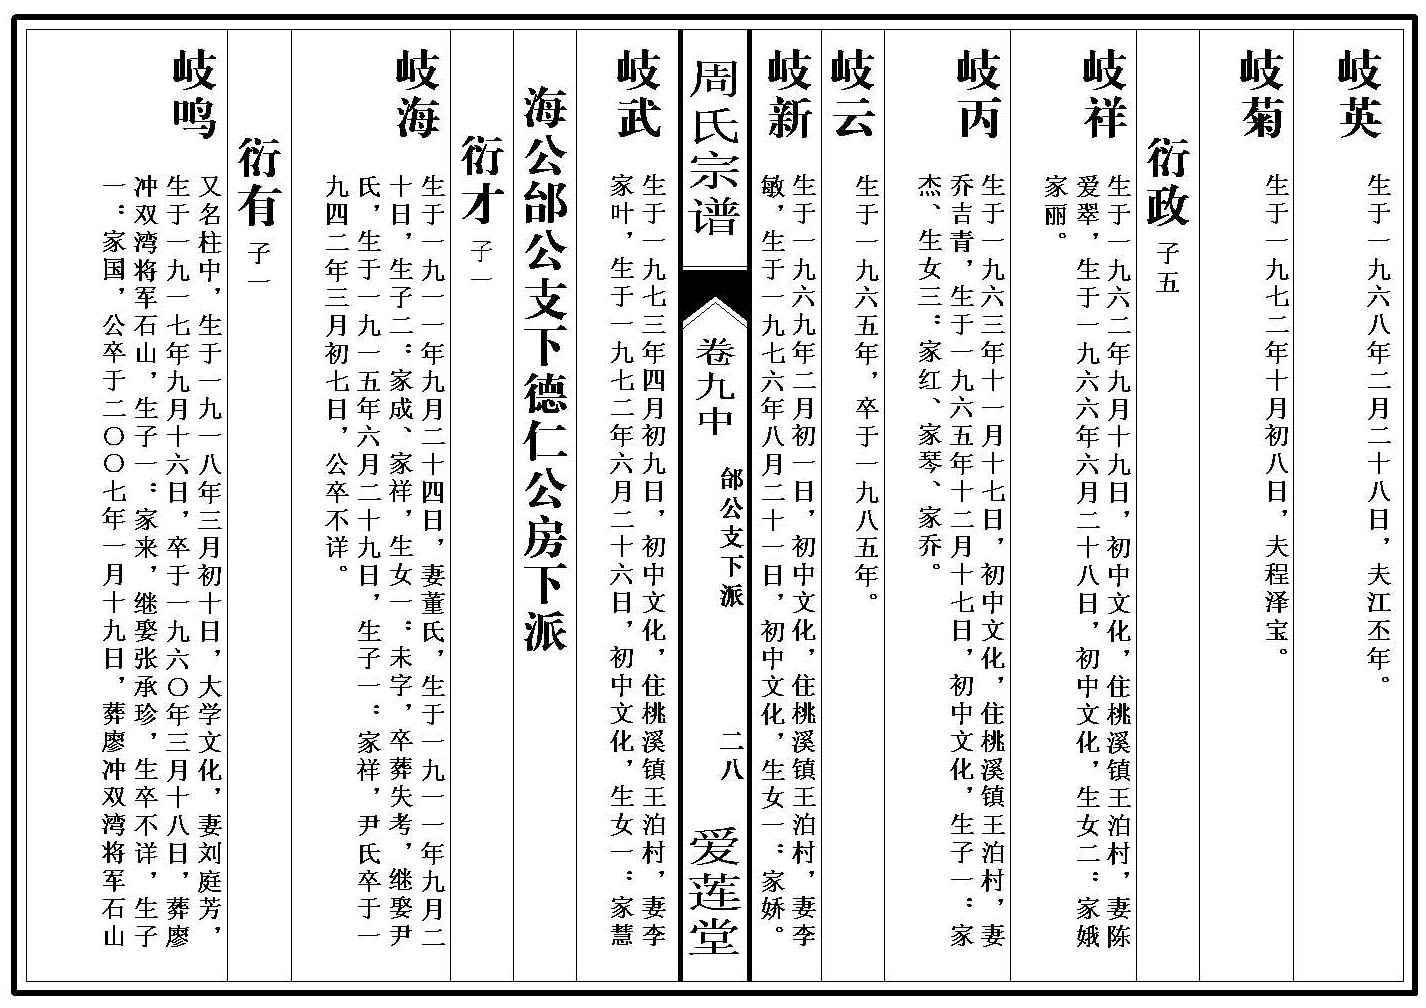 岐英
生于一九六八年二月二十八日，夫江丕年。
岐菊
生于一九七二年十月初八日，夫程泽宝。
衍政 子五
岐祥
生于一九六二年九月十九日，初中文化，住桃溪镇王泊村，妻陈
爱翠，生于一九六六年六月二十八日，初中文化，生女二：家娥
家丽。
岐丙
生于一九六三年十一月十七日，初中文化，住桃溪镇王泊村，妻
乔吉青，生于一九六五年十二月十七日，初中文化，生子一：家
杰、生女三：家红、家琴、家乔。
岐云
生于一九六五年，卒于一九八五年。
岐新
生于一九六九年二月初一日，初中文化，住桃溪镇王泊村，妻李
敏，生于一九七六年八月二十一日，初中文化，生女一：家娇。
周氏宗谱
卷九中
邰公支下派
二八
爱莲堂
岐武
生于一九七三年四月初九日，初中文化，住桃溪镇王泊村，妻李
家叶，生于一九七二年六月二十六日，初中文化，生女一：家慧
海公邰公支下德仁公房下派
衍才 子一
岐海
生于一九一一年九月二十四日，妻董氏，生于一九一一年九月二
十日，生子二：家成、家祥，生女一：未字，卒葬失考，继娶尹
氏，生于一九一五年六月二十九日，生子一：家祥，尹氏卒于一
九四二年三月初七日，公卒不详。
衍有 子一
岐鸣
又名柱中，生于一九一八年三月初十日，大学文化，妻刘庭芳，
生于一九一七年九月十六日，卒于一九六〇年三月十八日，葬廖
冲双湾将军石山，生子一：家来，继娶张承珍，生卒不详，生子
一：家国，公卒于二〇〇七年一月十九日，葬廖冲双湾将军石山